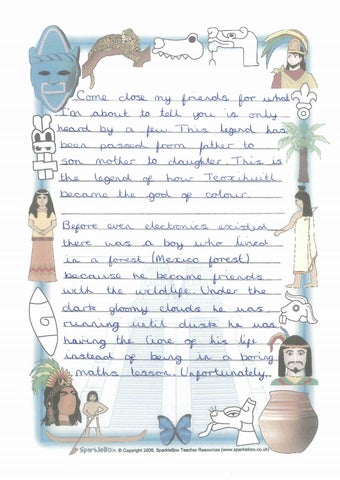 Come close my friends for what
I'm about to tell you is only
heard by a few. This legend has
been passed from father to
son mother to daughter. This is
the legend of how Teoxihuitl
became the god of colour.
Before even electronics existed
there was a boy who lived
in a forest (Mexico forest)
because he became friends
with the wildlife. Under the
dark gloomy clouds he was
running until dusk he was
having the time of his life
instead of being in a boring
maths lesson. Unfortunately,
SparkleBox © Copyright 2008, SparkleBox Teacher Resources (www.sparklebox.co.uk)